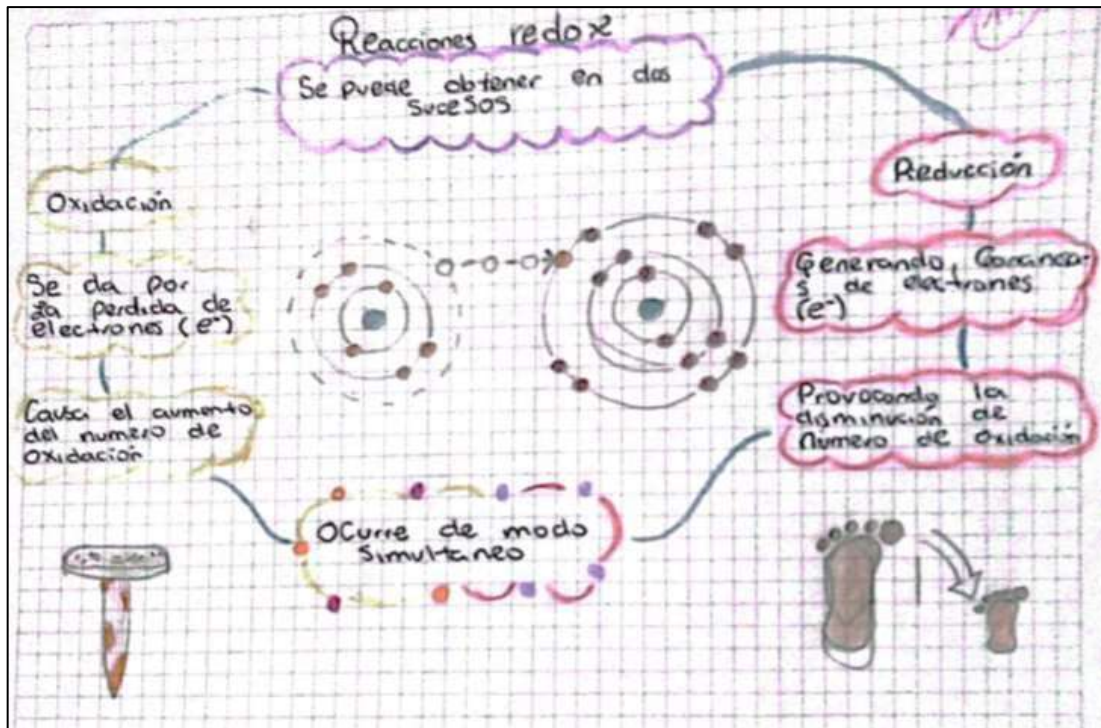 Reacciones redox
Se puede obtener en dos
sucesos
Oxidación
Se da por
la perdida de
electrones (e⁻)
Causa el aumento
del numero de
oxidación
Reducción
Generando Ganancia-
s de electrones
(e⁻)
Provocando la
disminución de
número de oxidación
Ocurre de modo
simultaneo